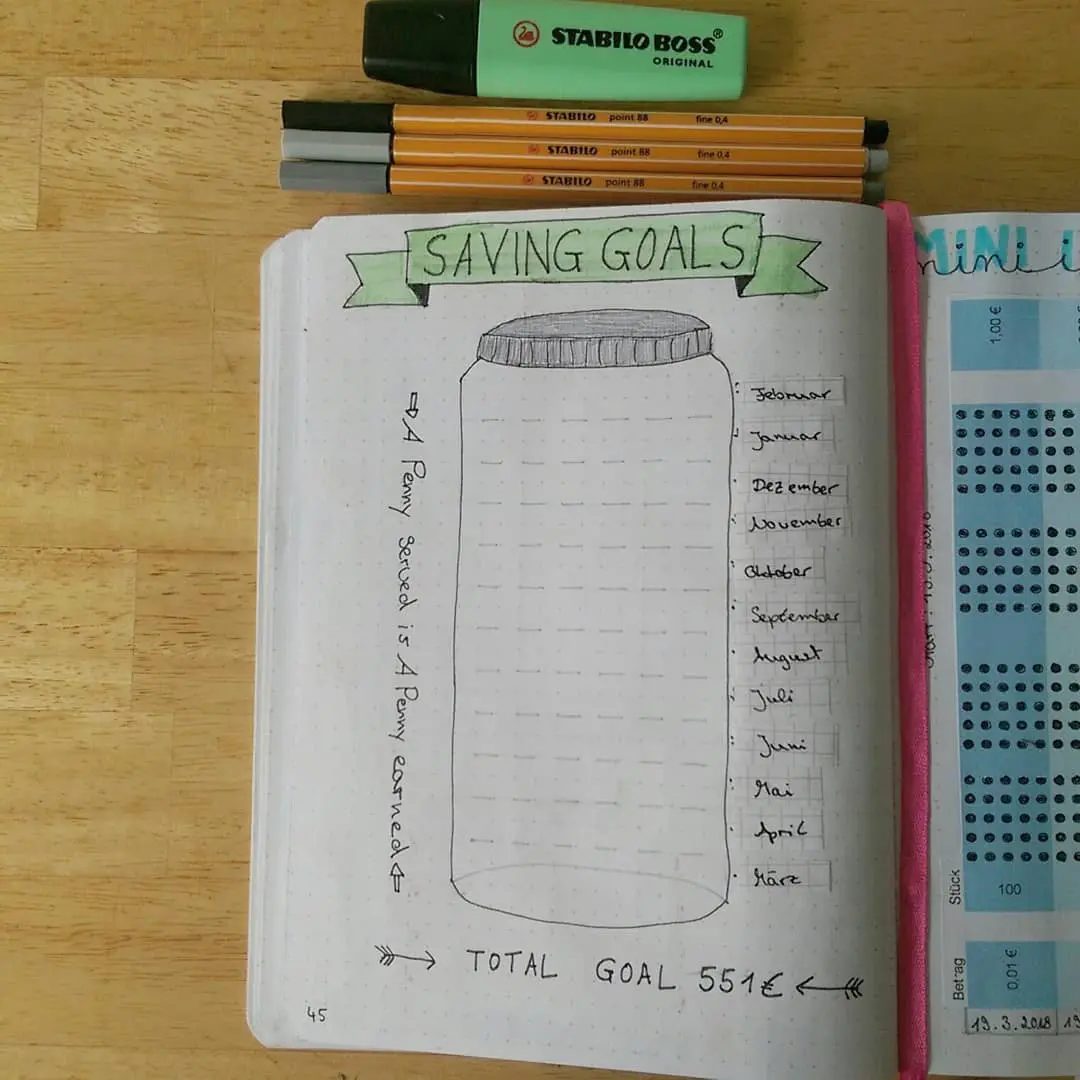 STABILO BOSS®
ORIGINAL
STABILO point 88 fine 0,4
STABILO point 88 fine 0,4
STABILO point 88 fine 0,4
SAVING GOALS
A Penny served is A Penny earned
Februar
Januar
Dezember
November
Oktober
September
August
Juli
Juni
Mai
April
März
TOTAL GOAL 551€
45
MINI
mini
1,00 €
Stück
100
Betrag
0,01 €
19.3.2018